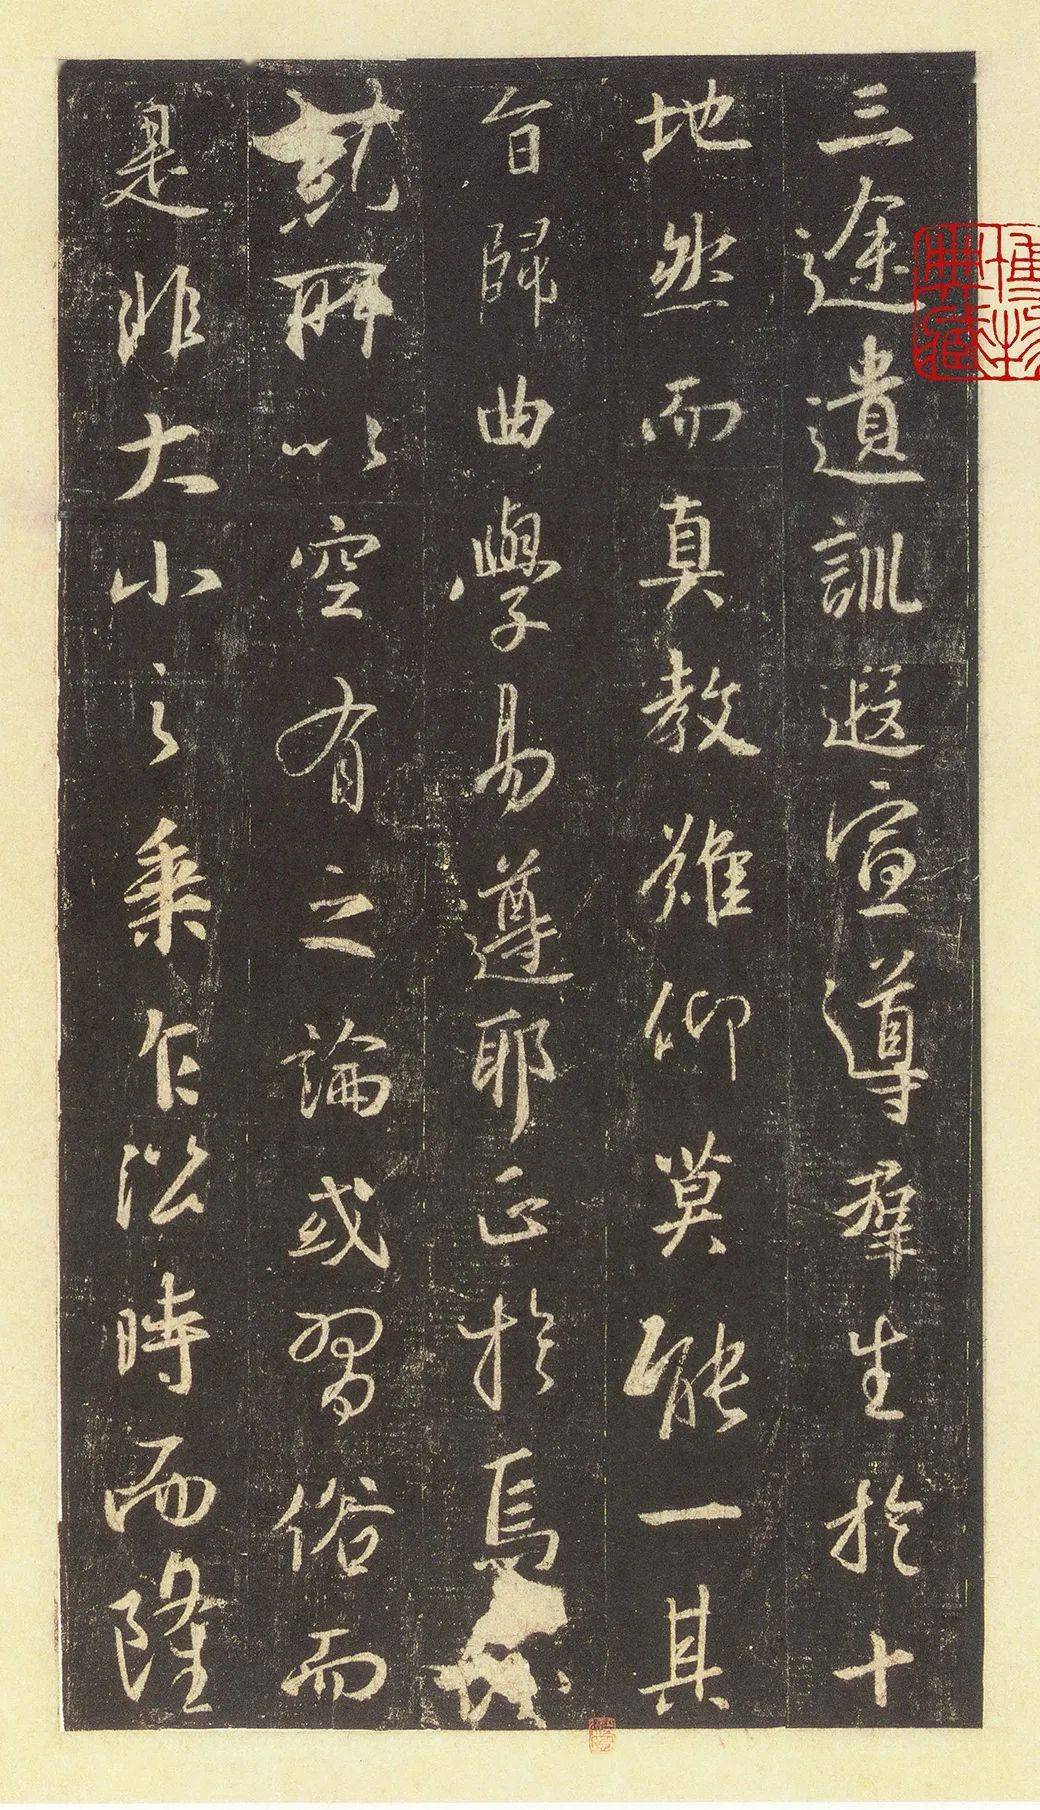 三途遺訓遐宣導羣生於十
地然而真教難仰莫能一其
旨歸曲學易遵耶正於焉
所以空有之論或習俗而
是非大小之乘乍沿時而隆